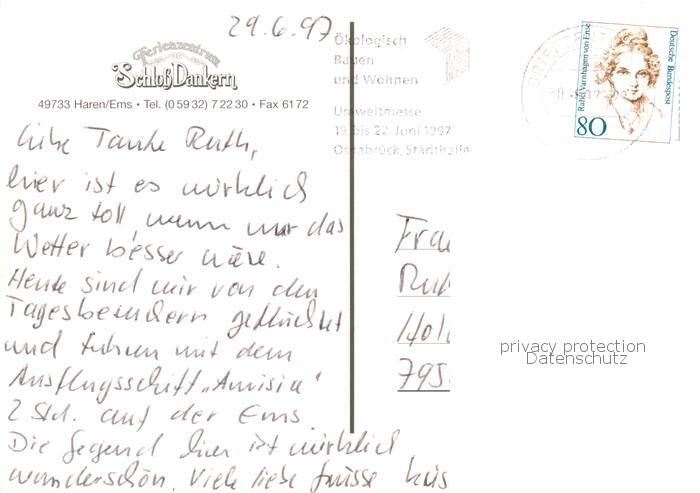 29.6.97
Ferienzentrum
Schloß Dankern
49733 Haren/Ems • Tel. (0 59 32) 7 22 30 • Fax 61 72
Liebe Tante Ruth,
hier ist es wirklich
ganz toll, wenn nur das
Wetter besser wäre.
Heute sind wir von den
Tagesbesuchern geflüchtet
und fuhren mit dem
Ausflugsschiff „Amisia"
2 Std. auf der Ems.
Die Gegend hier ist wirklich
wunderschön. Viele liebe Grüsse
Ökologisch
Bauen
und Wohnen
Umweltmesse
19. bis 22. Juni 1997
Osnabrück, Stadthalle
Rahel Varnhagen von Ense
Deutsche Bundespost
80
Frau
795
privacy protection
Datenschutz